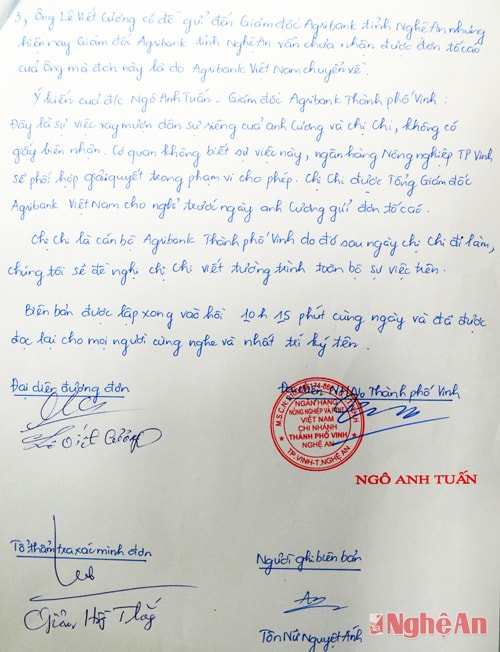 3, Ông Lê Viết Cường có đề gửi đến Giám đốc Agribank tỉnh Nghệ An nhưng
hiện nay Giám đốc Agribank tỉnh Nghệ An vẫn chưa nhận được đơn tố cáo
của ông mà đơn này là do Agribank Việt Nam chuyển về.
Ý kiến của đ/c Ngô Anh Tuấn - Giám đốc Agribank Thành phố Vinh:
Đây là sự việc vay mượn dân sự riêng của anh Cương và chị Chi, không có
giấy biên nhận. Cơ quan không biết sự việc này, ngân hàng Nông nghiệp TP Vinh
sẽ phối hợp giải quyết trong phạm vi cho phép. Chị Chi được Tổng Giám đốc
Agribank Việt Nam cho nghỉ trước ngày anh Cương gửi đơn tố cáo.
Chị Chi là cán bộ Agribank Thành phố Vinh do đó sau ngày chị Chi đi làm,
chúng tôi sẽ đề nghị chị Chi viết tường trình toàn bộ sự việc trên.
Biên bản được lập xong vào hồi 10h 15 phút cùng ngày và đã được
đọc lại cho mọi người cùng nghe và nhất trí ký tên.
Đại diện đương đơn
Đại diện NHNo Thành phố Vinh
Lê Viết Cường
NGÂN HÀNG
NÔNG NGHIỆP VÀ PTNT
VIỆT NAM
CHI NHÁNH
THÀNH PHỐ VINH
NGHỆ AN
TP.VINH-T.NGHỆ AN
NGÔ ANH TUẤN
Tổ thẩm tra xác minh đơn
Người ghi biên bản
Tôn Nữ Nguyệt Ánh
Nghệ An